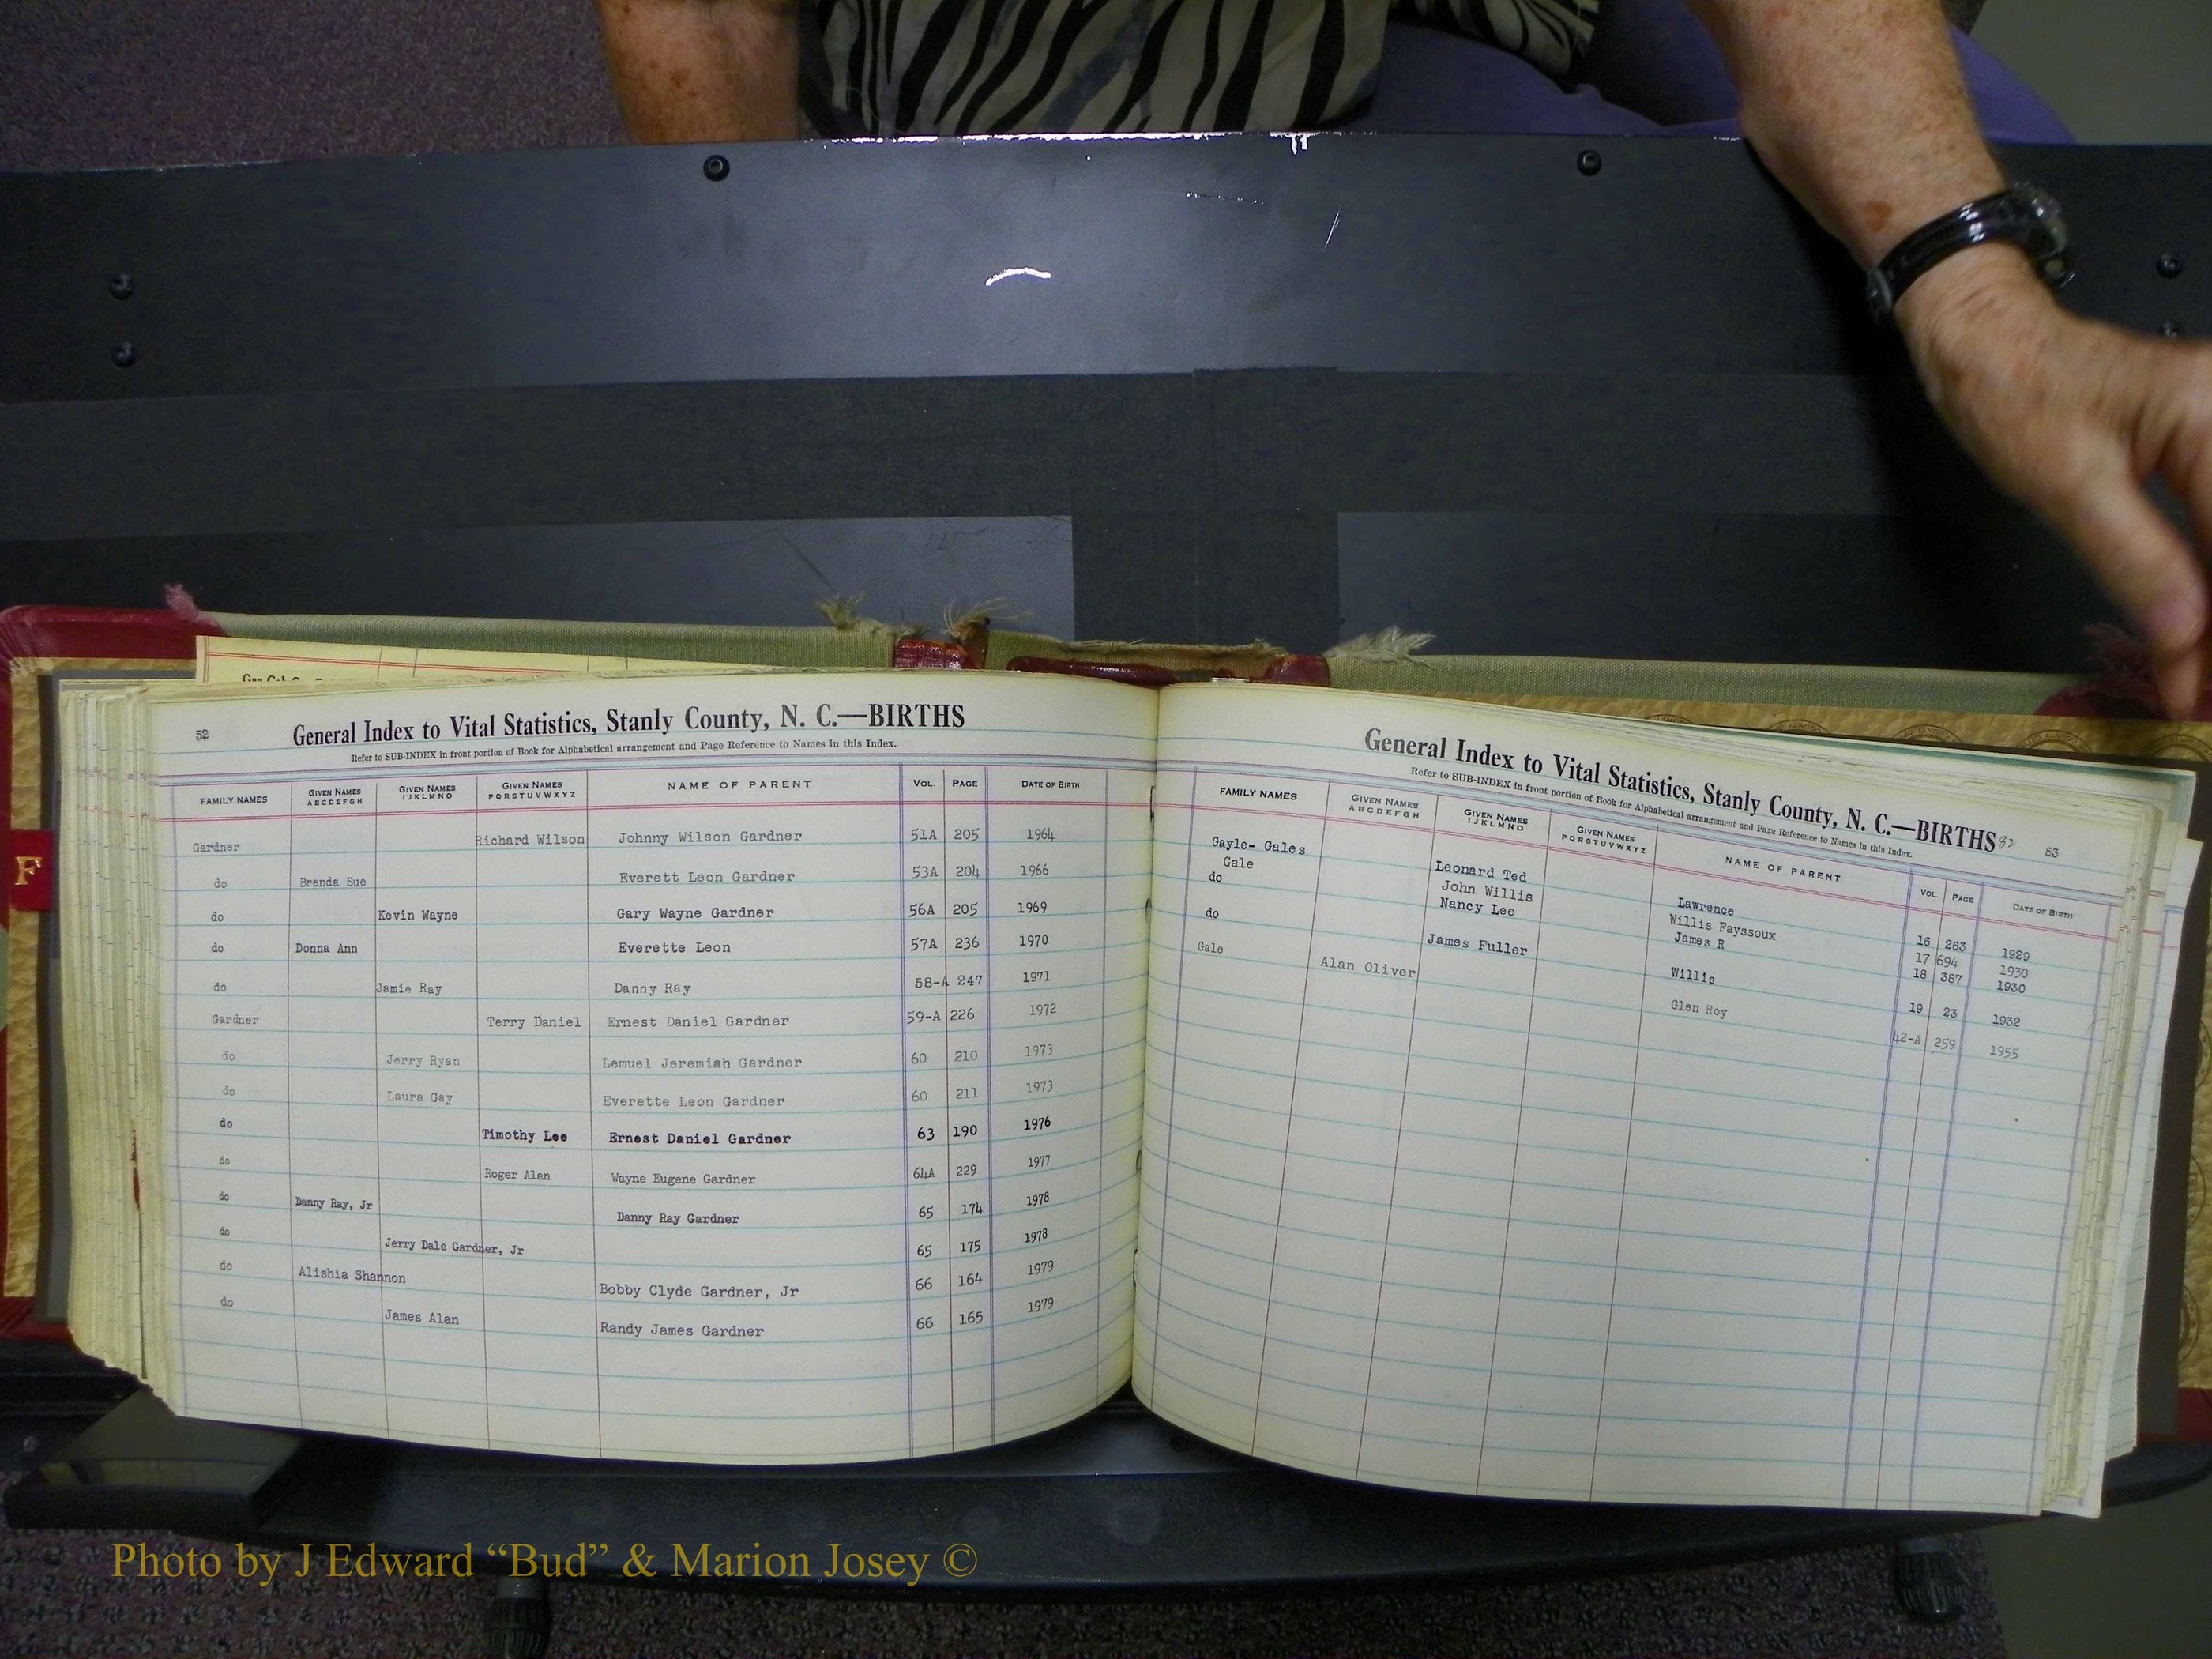 52
General Index to Vital Statistics, Stanly County, N. C.—BIRTHS
Refer to SUB-INDEX in front portion of Book for Alphabetical arrangement and Page Reference to Names in this Index.
FAMILY NAMES GIVEN NAMES ABCDEFGH GIVEN NAMES IJKLMNO GIVEN NAMES PQRSTUVWXYZ NAME OF PARENT VOL. PAGE DATE OF BIRTH
Gardner Richard Wilson Johnny Wilson Gardner 51A 205 1964
do Brenda Sue Everett Leon Gardner 53A 204 1966
do Kevin Wayne Gary Wayne Gardner 56A 205 1969
do Donna Ann Everette Leon 57A 236 1970
do Jamie Ray Danny Ray 58-A 247 1971
Gardner Terry Daniel Ernest Daniel Gardner 59-A 226 1972
do Jerry Ryan Lemuel Jeremiah Gardner 60 210 1973
do Laura Gay Everette Leon Gardner 60 211 1973
do Timothy Lee Ernest Daniel Gardner 63 190 1976
do Roger Alan Wayne Eugene Gardner 64A 229 1977
do Danny Ray, Jr Danny Ray Gardner 65 174 1978
do Jerry Dale Gardner, Jr 65 175 1978
do Alishia Shannon Bobby Clyde Gardner, Jr 66 164 1979
do James Alan Randy James Gardner 66 165 1979
General Index to Vital Statistics, Stanly County, N. C.—BIRTHS 82 53
Refer to SUB-INDEX in front portion of Book for Alphabetical arrangement and Page Reference to Names in this Index.
FAMILY NAMES GIVEN NAMES ABCDEFGH GIVEN NAMES IJKLMNO GIVEN NAMES PQRSTUVWXYZ NAME OF PARENT VOL. PAGE DATE OF BIRTH
Gayle- Gales
Gale Leonard Ted Lawrence 16 263 1929
do John Willis Willis Fayssoux 17 694 1930
Nancy Lee James R 18 387 1930
do James Fuller Willis 19 23 1932
Gale Alan Oliver Glen Roy 42-A 259 1955
F
Photo by J Edward “Bud” & Marion Josey ©